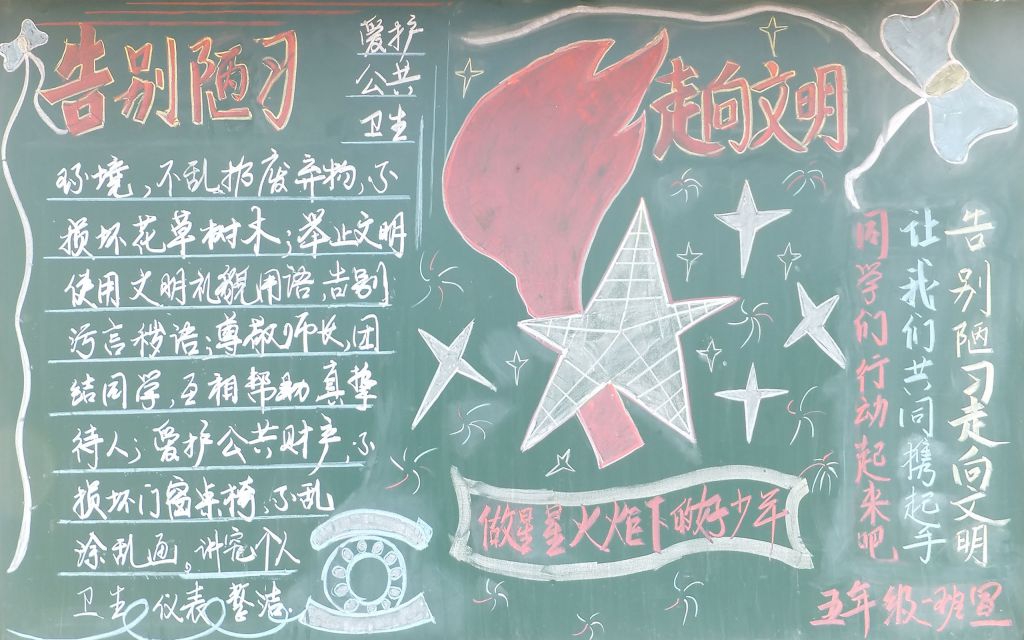 告别陋习
爱护
公共
卫生
环境,不乱扔废弃物,不
损坏花草树木;举止文明
使用文明礼貌用语,告别
污言秽语;尊敬师长,团
结同学,互相帮助真挚
待人;爱护公共财产,不
损坏门窗桌椅,不乱
涂乱画。讲究个人
卫生 仪表整洁.
走向文明
做星星火炬下的好少年
告别陋习走向文明
让我们共同携起手
同学们行动起来吧
五年级一班宣